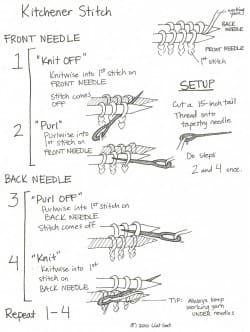 Kitchener Stitch
working yarn
BACK NEEDLE
FRONT NEEDLE
1st stitch
FRONT NEEDLE
1 "Knit OFF"
Knitwise into 1st stitch on
FRONT NEEDLE
Stitch comes
OFF
2 "Purl"
Purlwise into
1st stitch on
FRONT NEEDLE
SETUP
Cut a 15-inch tail
Thread onto
tapestry needle.
Do steps
2 and 4 once.
BACK NEEDLE
3 "Purl OFF"
Purlwise into 1st stitch on
BACK NEEDLE
Stitch comes off
4 "Knit"
Knitwise into 1st
stitch on
BACK NEEDLE
Repeat 1-4
TIP: Always keep
working yarn
UNDER needles
© 2010